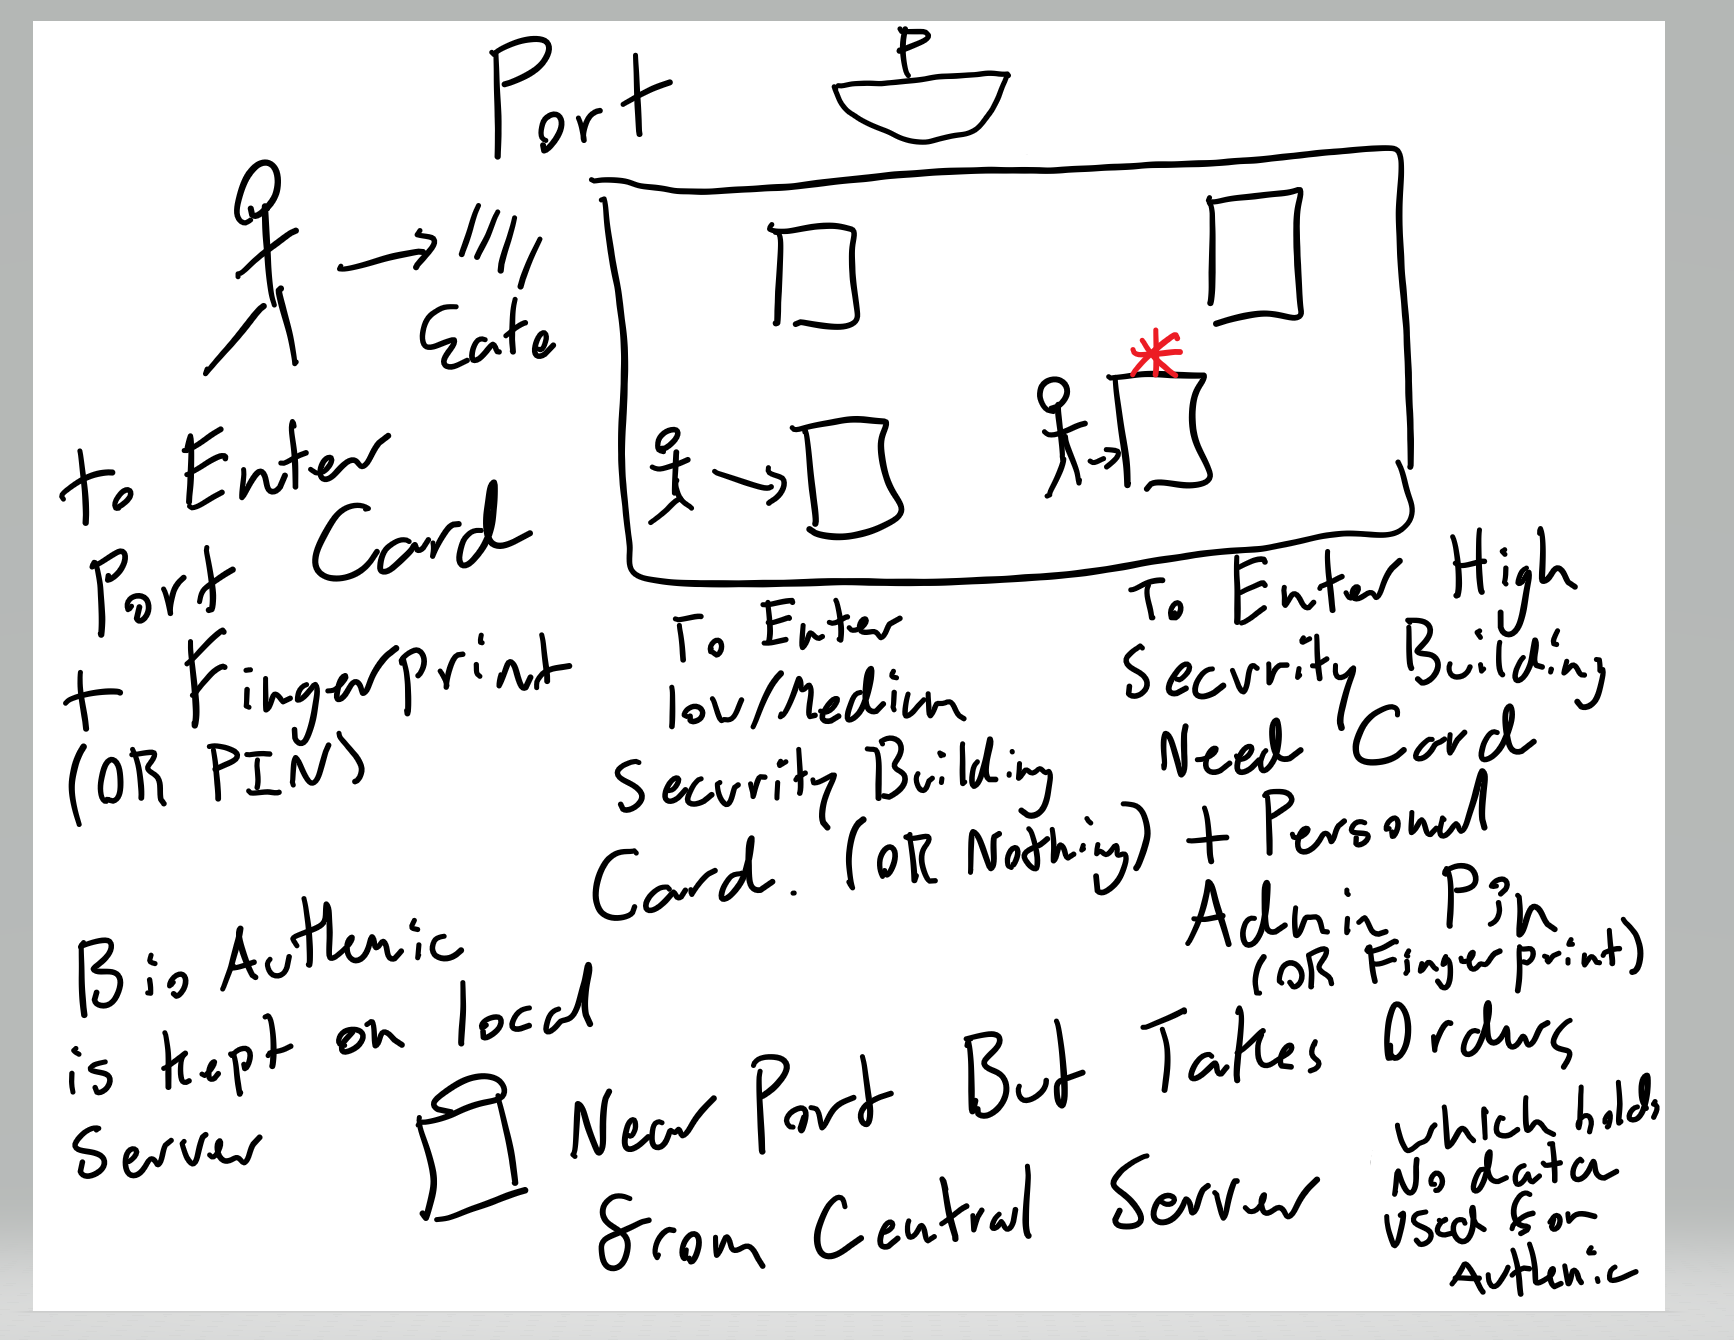 Port
P
Gate
to Enter
Port Card
+ Fingerprint
(OR PIN)
To Enter
low/Medium
Security Building
Card. (OR Nothing)
To Enter High
Security Building
Need Card
+ Personal
Admin Pin
(OR Fingerprint)
Bio Authenic
is kept on local
Server
Near Port But Takes Orders
from Central Server
which holds
No data
used for
Authenic